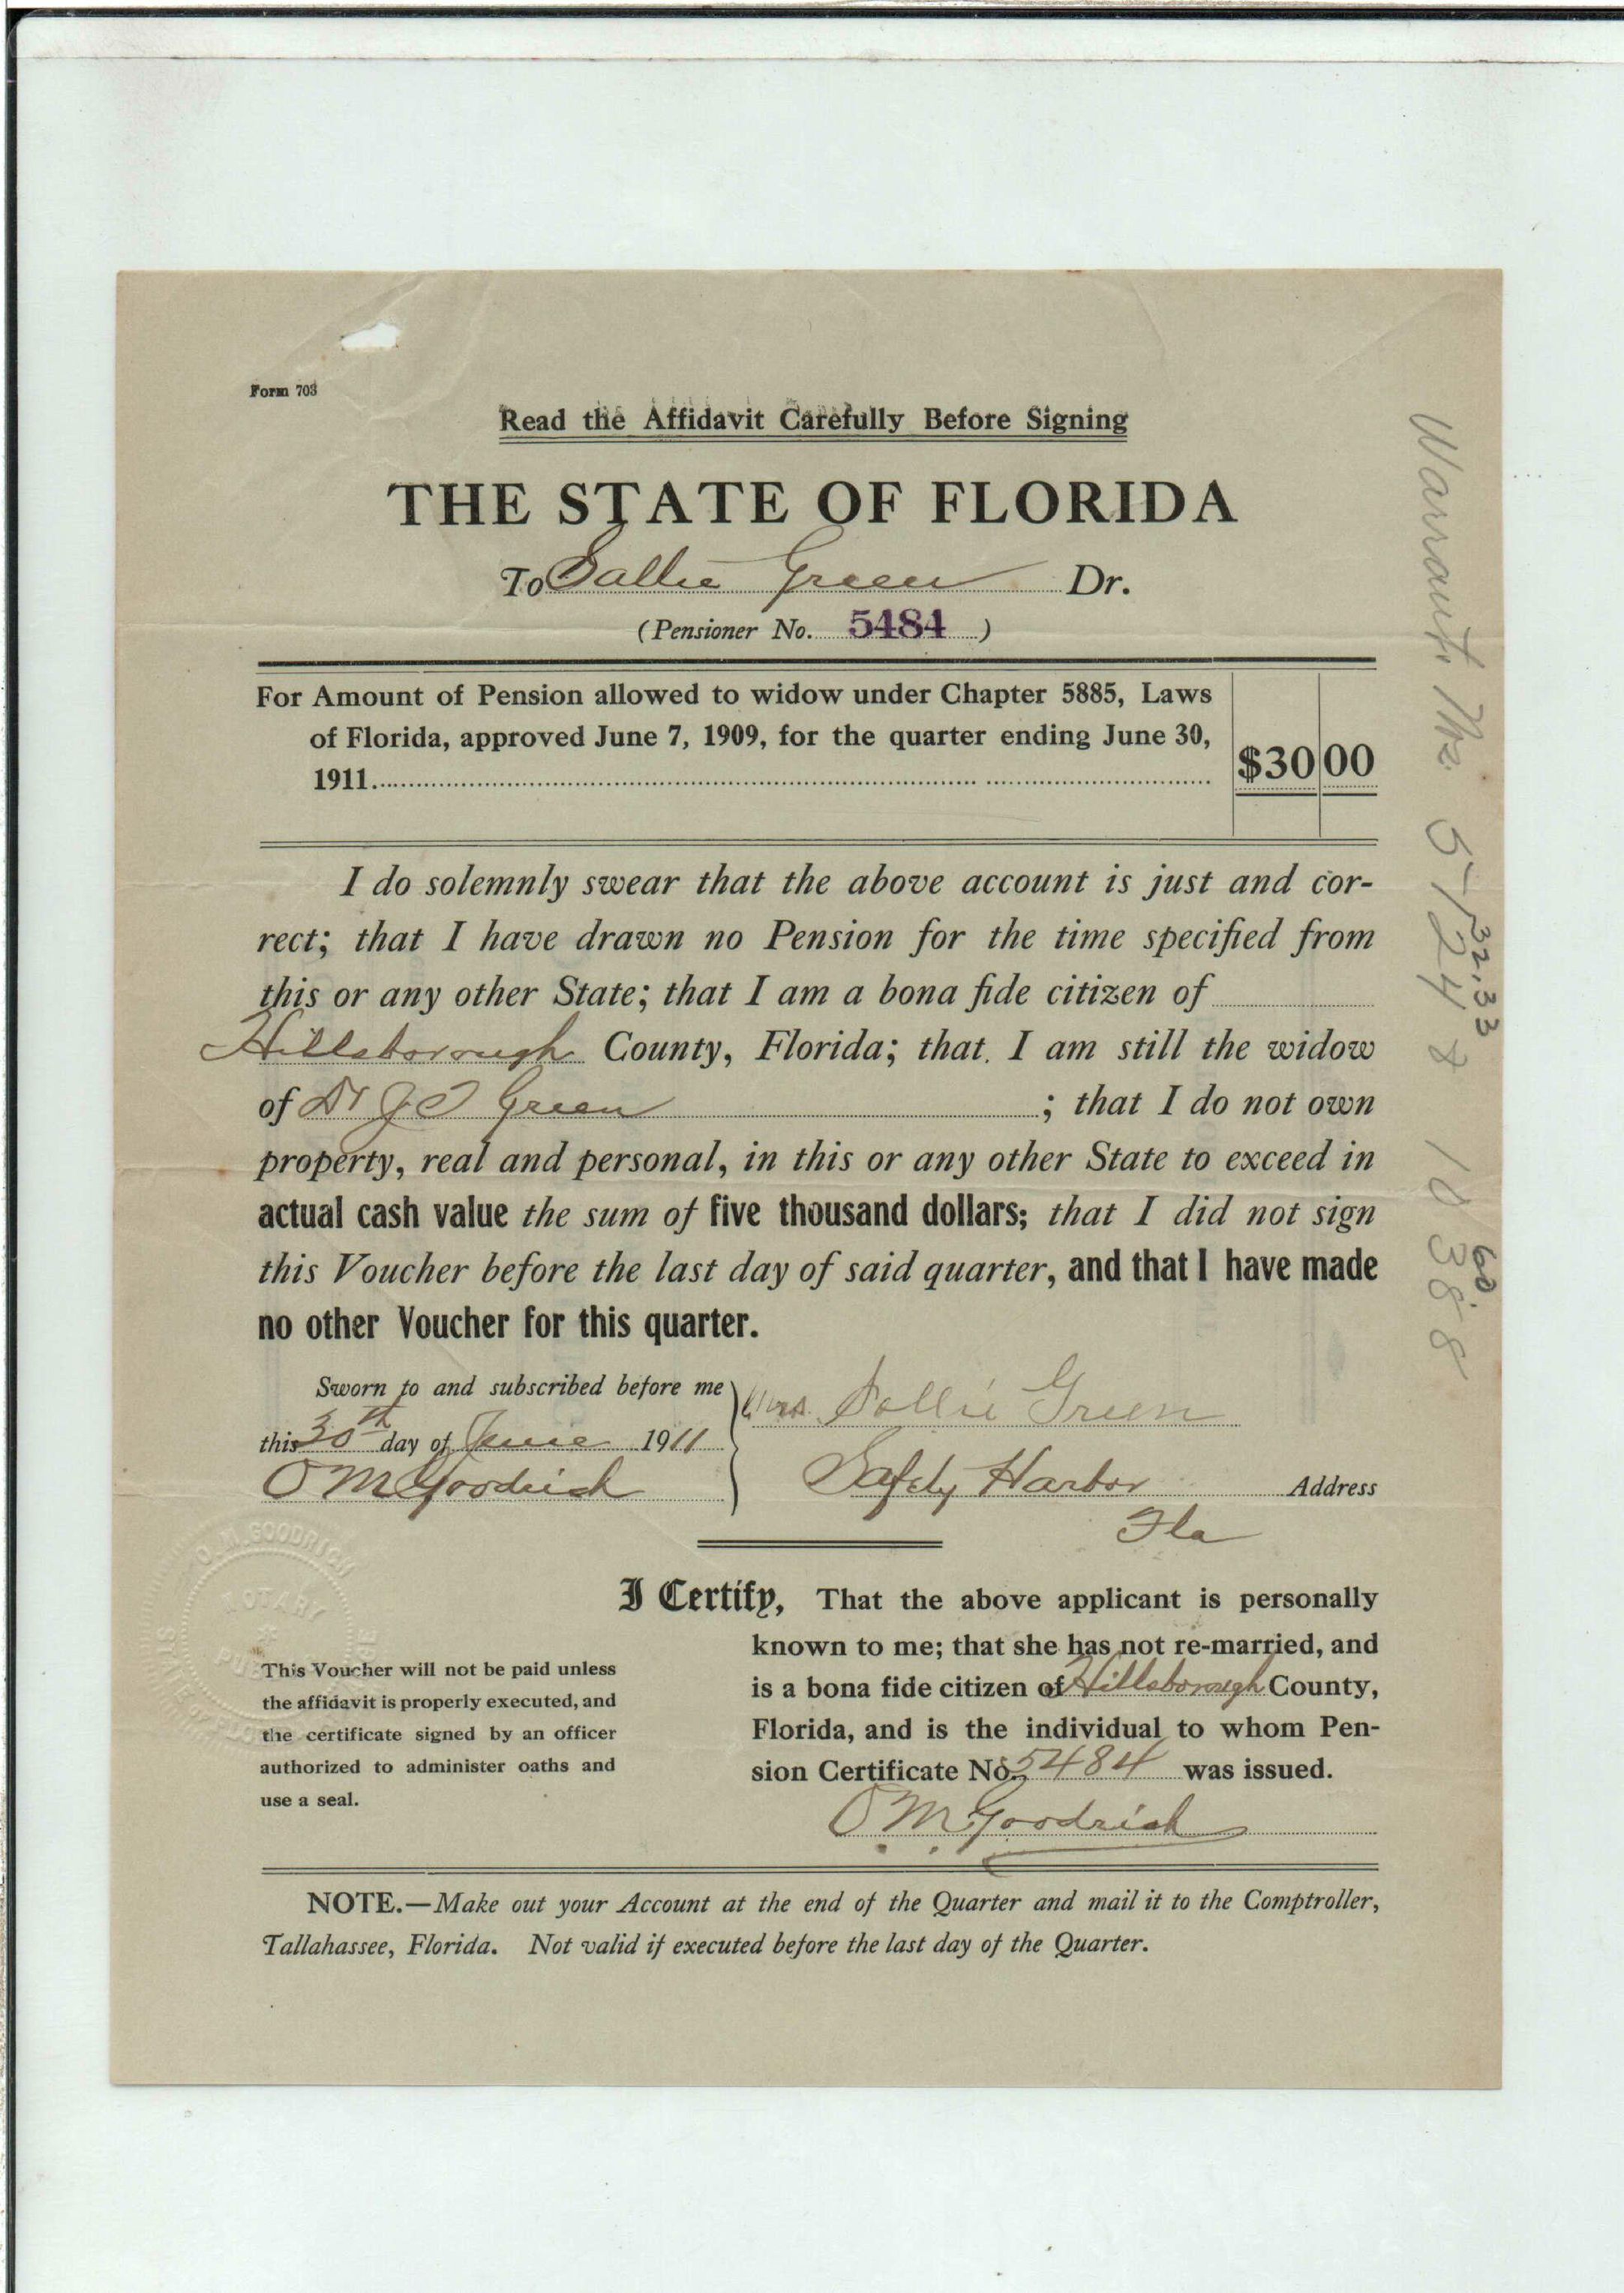 Form 703
Read the Affidavit Carefully Before Signing
THE STATE OF FLORIDA
To Sallie Green Dr.
(Pensioner No. 5484 )
For Amount of Pension allowed to widow under Chapter 5885, Laws
of Florida, approved June 7, 1909, for the quarter ending June 30,
1911. $30 00
I do solemnly swear that the above account is just and cor-
rect; that I have drawn no Pension for the time specified from
this or any other State; that I am a bona fide citizen of
Hillsborough County, Florida; that I am still the widow
of Dr J T Green ; that I do not own
property, real and personal, in this or any other State to exceed in
actual cash value the sum of five thousand dollars; that I did not sign
this Voucher before the last day of said quarter, and that I have made
no other Voucher for this quarter.
Sworn to and subscribed before me
this 30th day of June 1911
O M Goodrich
Mrs. Sallie Green
Safety Harbor Address
Fla
O. M. GOODRICH
NOTARY
PUBLIC
STATE OF FLORIDA
I Certify, That the above applicant is personally
known to me; that she has not re-married, and
is a bona fide citizen of Hillsborough County,
Florida, and is the individual to whom Pen-
sion Certificate No. 5484 was issued.
O M Goodrich
This Voucher will not be paid unless
the affidavit is properly executed, and
the certificate signed by an officer
authorized to administer oaths and
use a seal.
NOTE.—Make out your Account at the end of the Quarter and mail it to the Comptroller,
Tallahassee, Florida. Not valid if executed before the last day of the Quarter.
Warrants
32.33
60